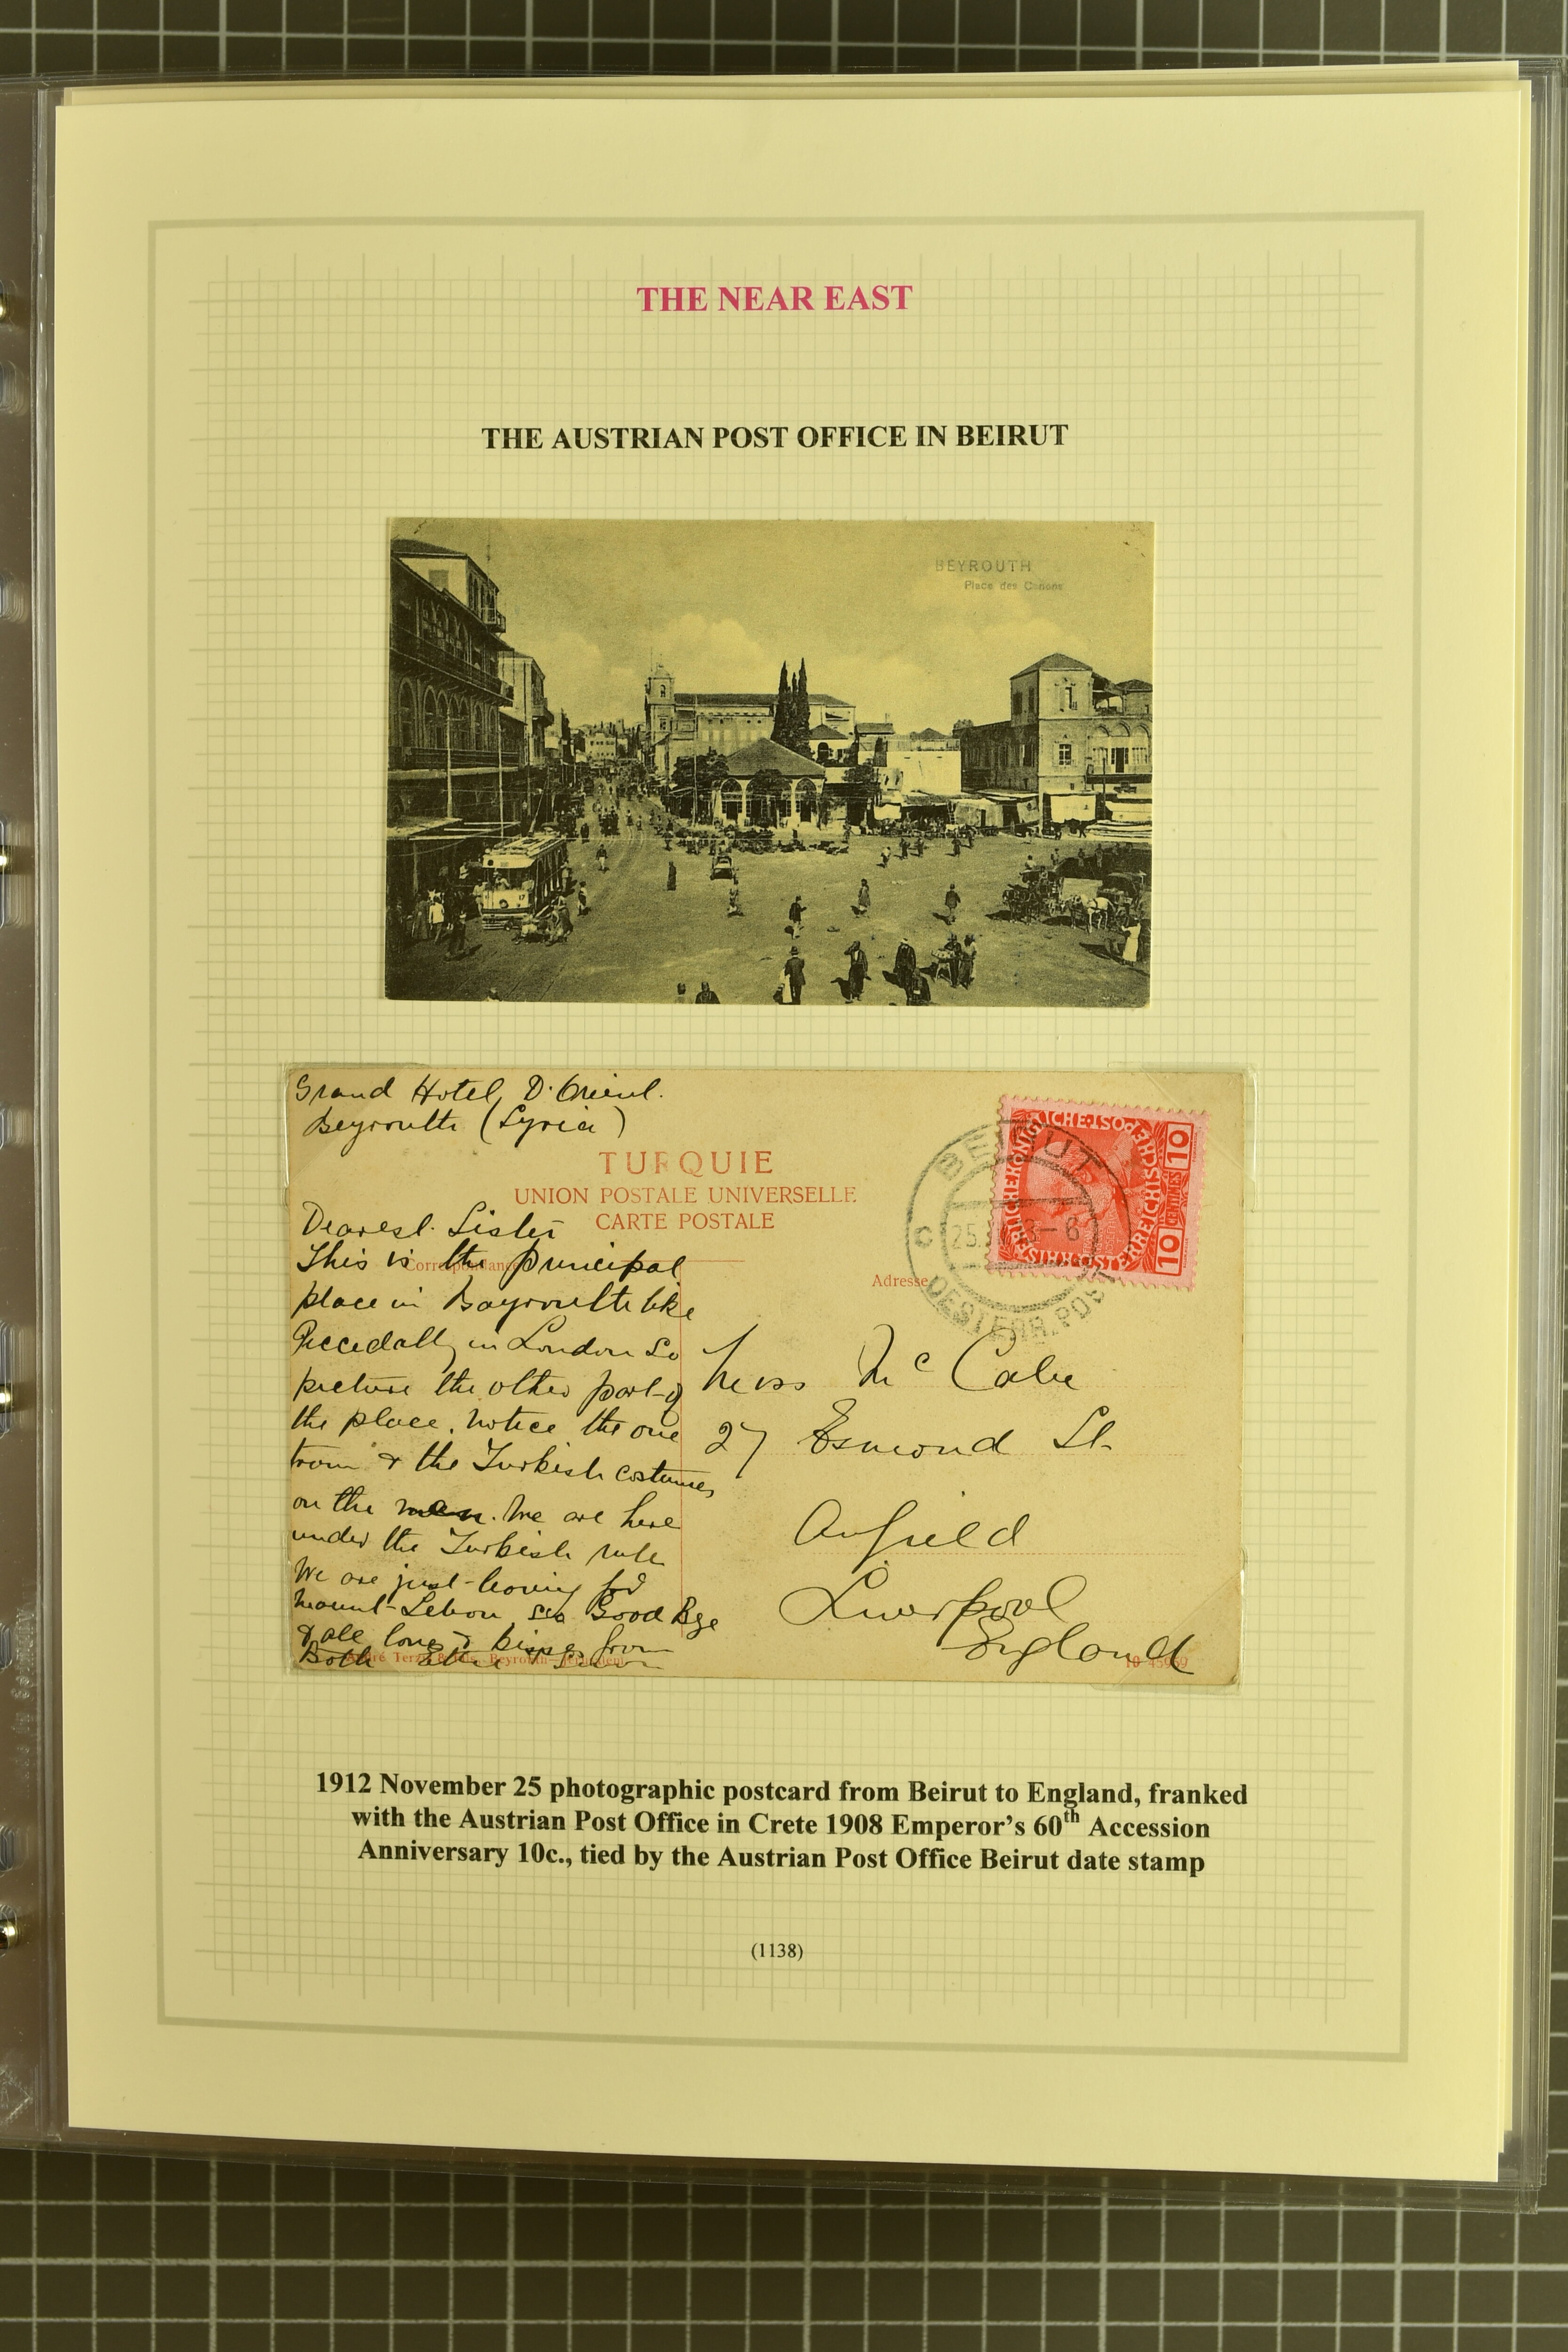 THE NEAR EAST
THE AUSTRIAN POST OFFICE IN BEIRUT
BEYROUTH
Place des Canons
Grand Hotel D'Orient.
Beyrouth (Syria)
TURQUIE
UNION POSTALE UNIVERSELLE
CARTE POSTALE
Correspondance
Adresse
BEIRUT
25.
3-6
C
OESTERR. POST
10
10
CENTIMES
Dearest Sister
This is the principal
place in Bayrouth like
Piccedally in London so
picture the other part of
the place. Notice the one
tram & the Turkish costumes
on the men. We are here
under the Turkish rule
We are just leaving for
Mount-Lebon so Good Bye
& all love & kisses from
Both
Miss McCabe
27 Esmond St.
Anfield
Liverpool
England
1912 November 25 photographic postcard from Beirut to England, franked
with the Austrian Post Office in Crete 1908 Emperor's 60th Accession
Anniversary 10c., tied by the Austrian Post Office Beirut date stamp
(1138)